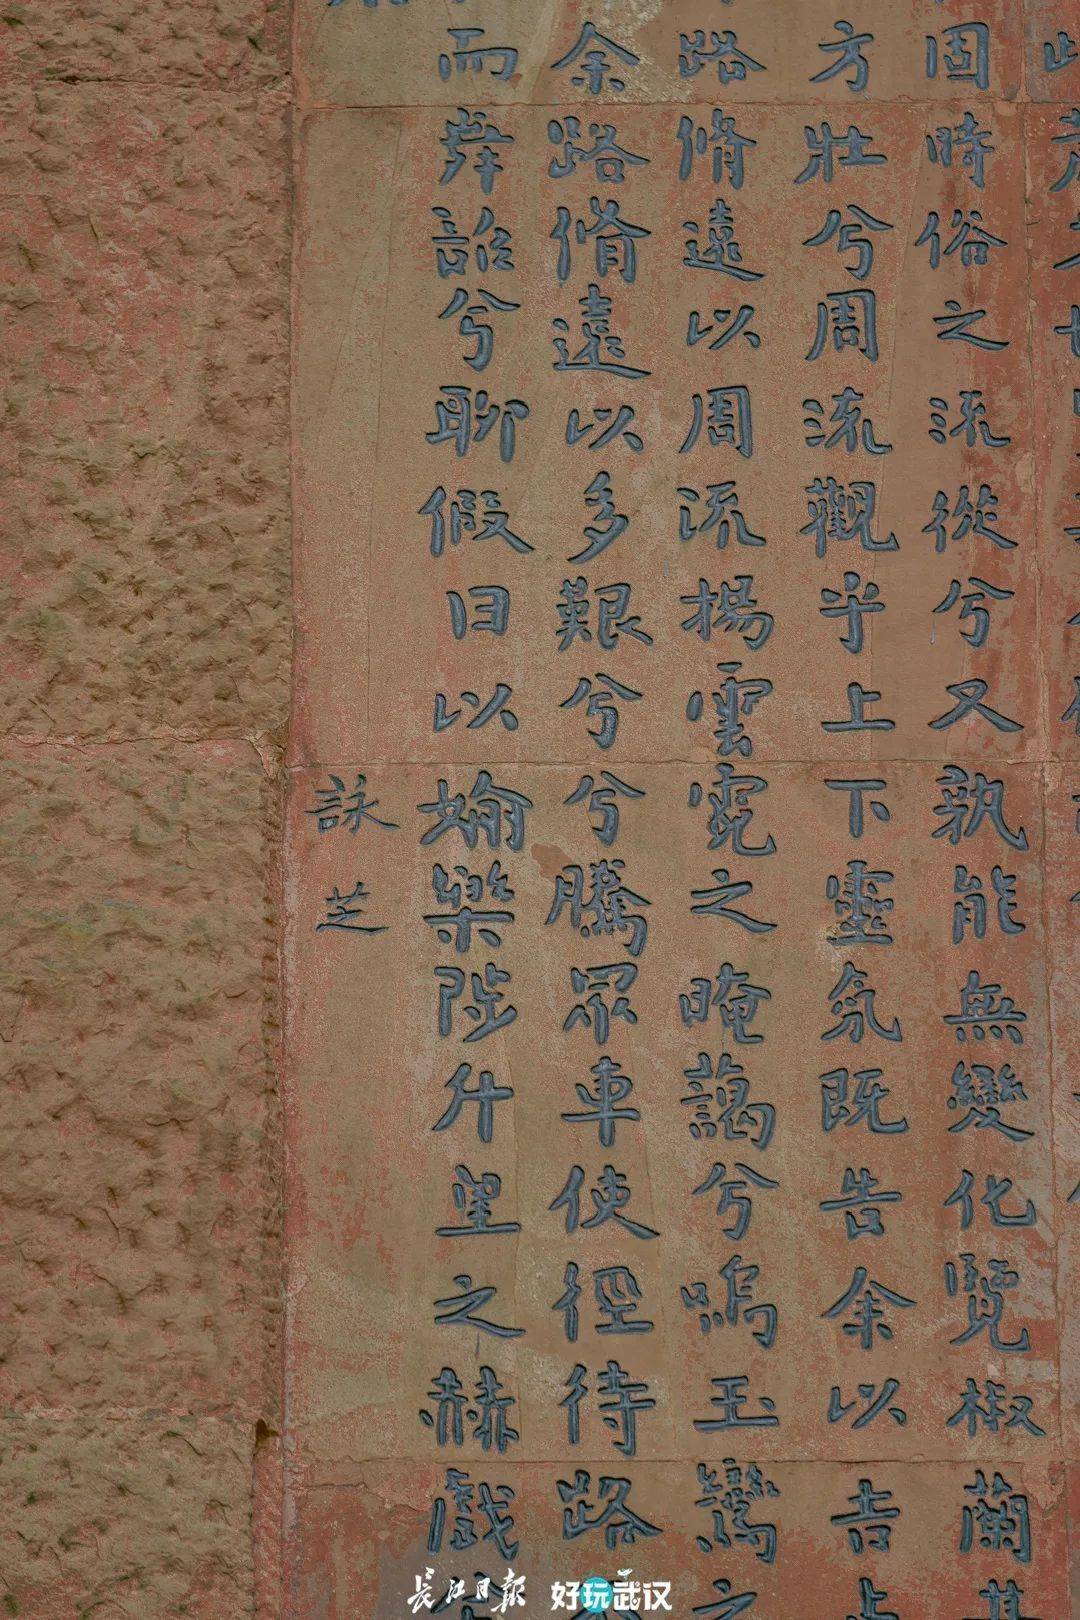 固時俗之流從兮又孰能無變化覽椒蘭其
方壯兮周流觀乎上下靈氛既告余以吉占
路脩遠以周流揚雲霓之晻藹兮鳴玉鸞之
余路脩遠以多艱兮兮騰眾車使徑待路不
而舞韶兮聊假日以媮樂陟升皇之赫戲兮
詠芝
長江日報 好玩武汉